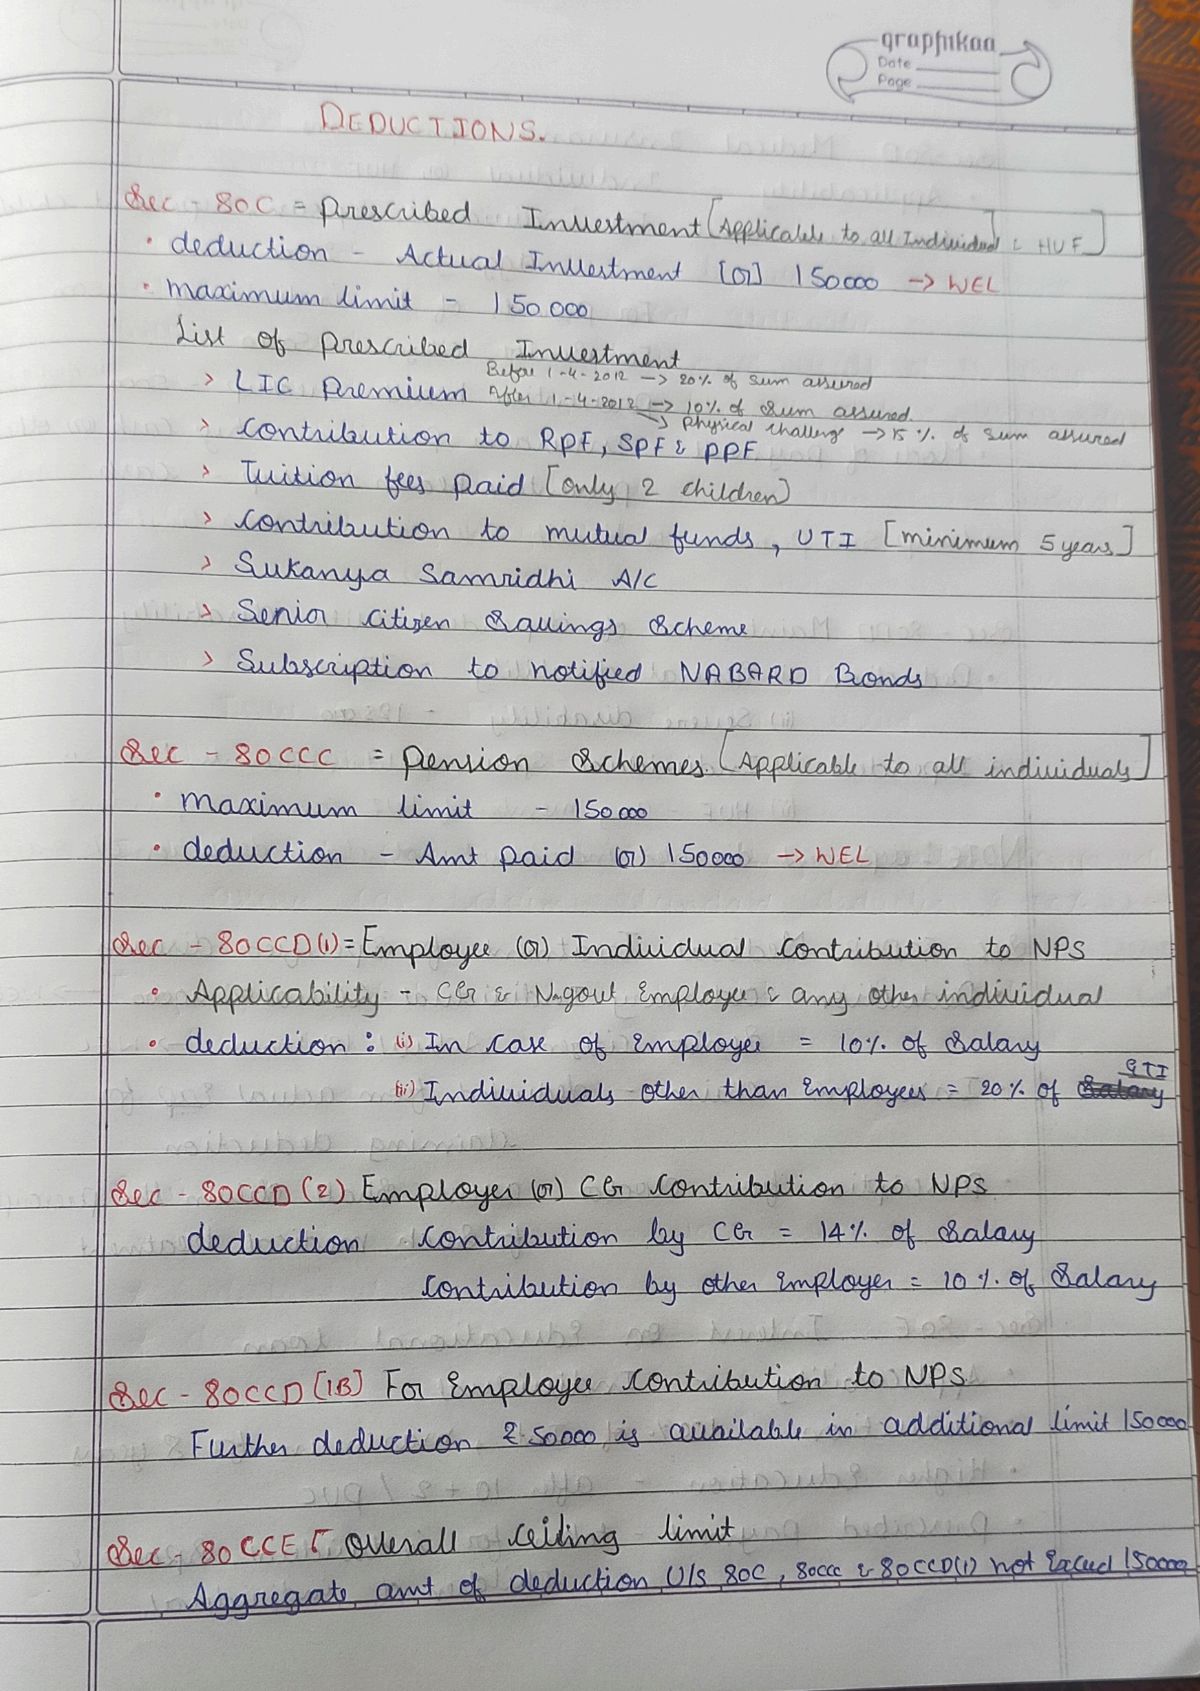 graphikaa
Date
Page
DEDUCTIONS.
Sec - 80C = Prescribed Investment [Applicable to all Individual & HUF]
• deduction - Actual Investment [or] 150000 → WEL
• maximum limit - 150000
List of Prescribed Investment
> LIC Premium Before 1-4-2012 → 20% of sum assured
After 1-4-2012 → 10% of sum assured
→ Physical challenge → 15% of sum assured
> Contribution to RPF, SPF & PPF
> Tuition fees paid [only 2 children]
> Contribution to mutual funds, UTI [minimum 5 years]
> Sukanya Samridhi A/C
> Senior Citizen Savings Scheme
> Subscription to notified NABARD Bonds
Sec - 80CCC = Pension Schemes. [Applicable to all individuals]
• maximum limit - 150000
• deduction - Amt paid (or) 150000 → WEL
Sec - 80CCD(1) = Employee (or) Individual contribution to NPS
• Applicability - CG & N.gout Employee & any other individual
• deduction : (i) In case of Employee = 10% of Salary
(ii) Individuals other than Employees = 20% of GTI
Sec - 80CCD (2) Employer (or) CG contribution to NPS
deduction Contribution by CG = 14% of Salary
Contribution by other Employer = 10% of Salary
Sec - 80CCD [1B] For Employee contribution to NPS
Further deduction ₹ 50000 is available in additional limit 150000
Sec - 80 CCE Overall ceiling limit
Aggregate amt of deduction U/s 80C, 80ccc & 80CCD(1) not Exceed 150000